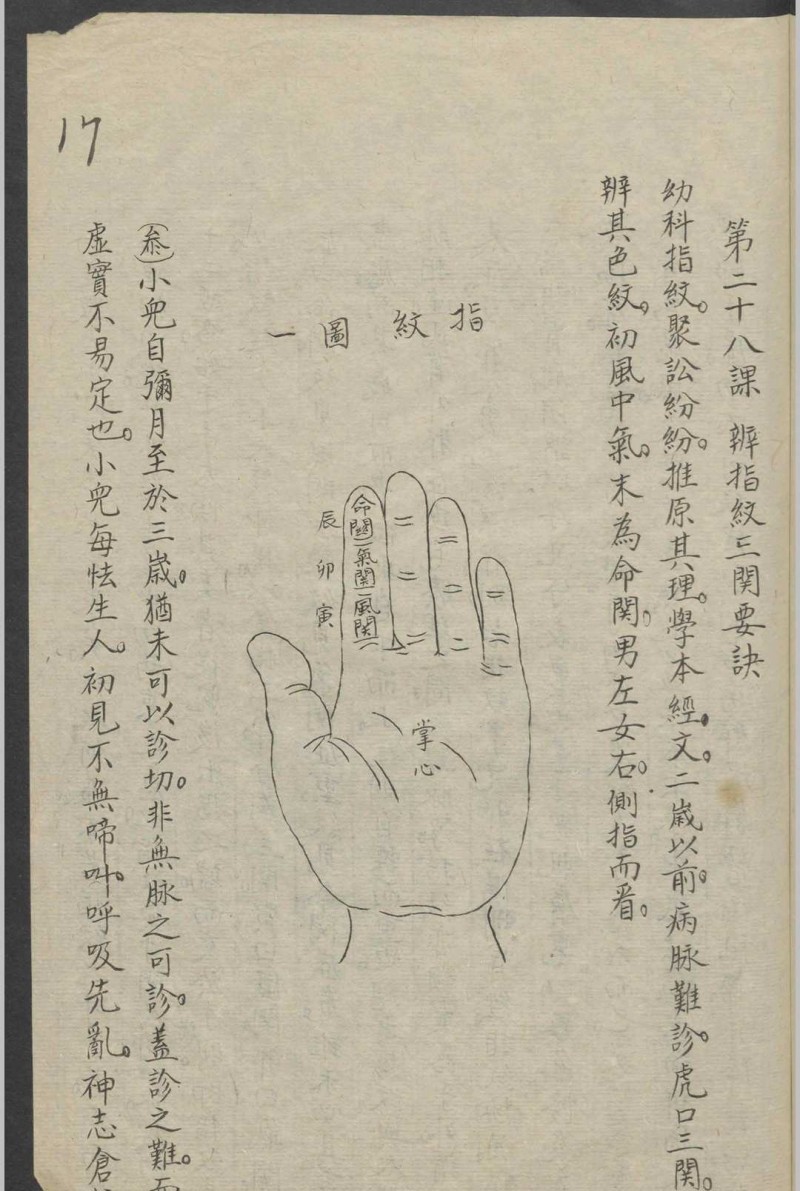 17
第二十八課 辨指紋三関要訣
幼科指紋。聚訟紛紛。推原其理。學本經文。二歲以前。病脉難診。虎口三関。
辨其色紋。初風中氣。末為命関。男左女右。側指而看。
指紋圖一
命関
氣関
風関
辰
卯
寅
掌心
(叅)小兒自彌月至於三歲。猶未可以診切。非無脉之可診。蓋診之難。而
虛實不易定也。小兒每怯生人。初見不無啼叫。呼吸先亂。神志倉